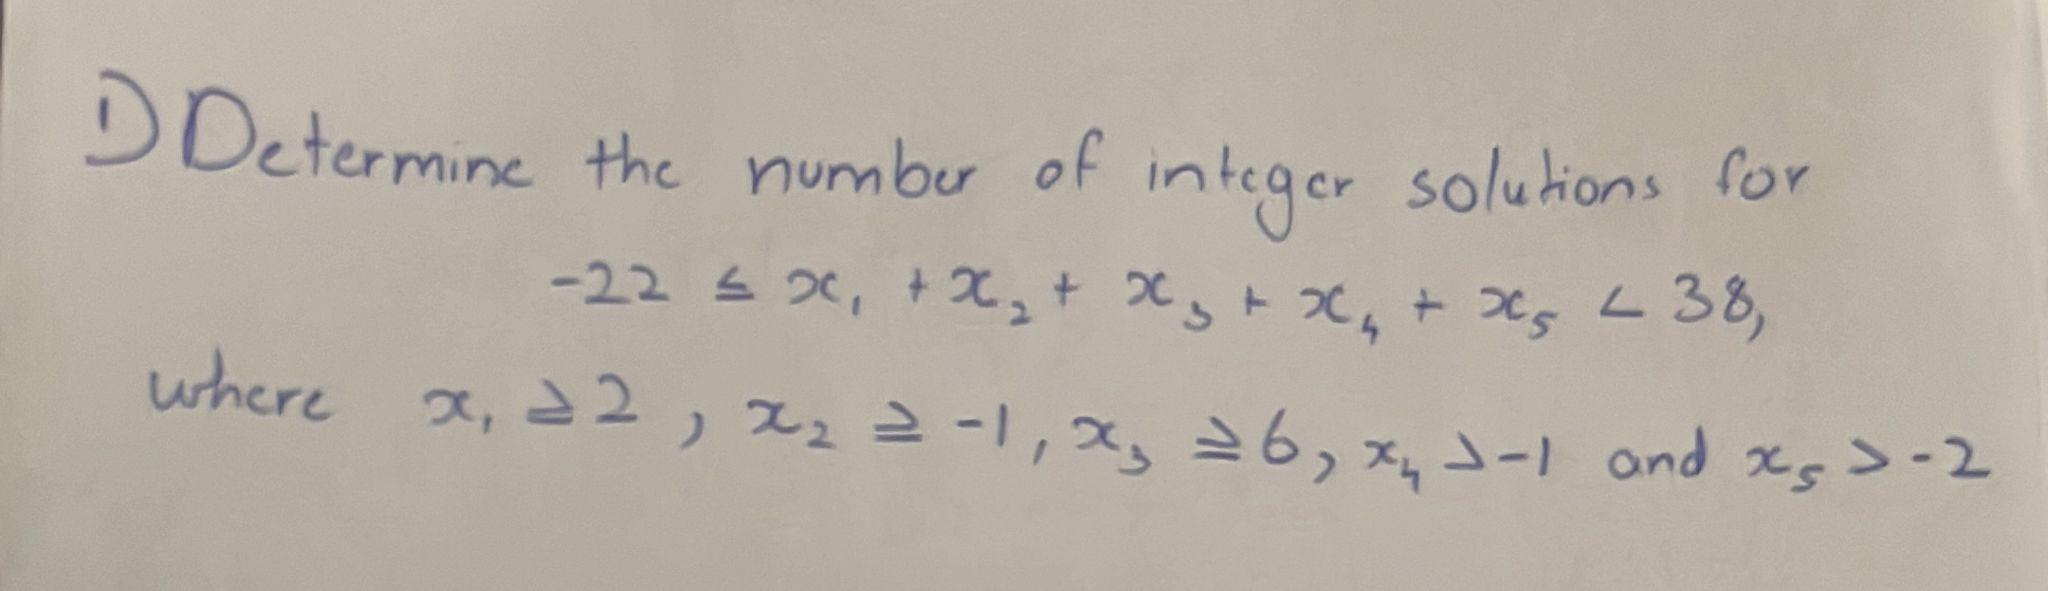 1) Determine the number of integer solutions for
-22 ≤ x₁ + x₂ + x₃ + x₄ + x₅ < 38,
where x₁ ≥ 2, x₂ ≥ -1, x₃ ≥ 6, x₄ > -1 and x₅ > -2